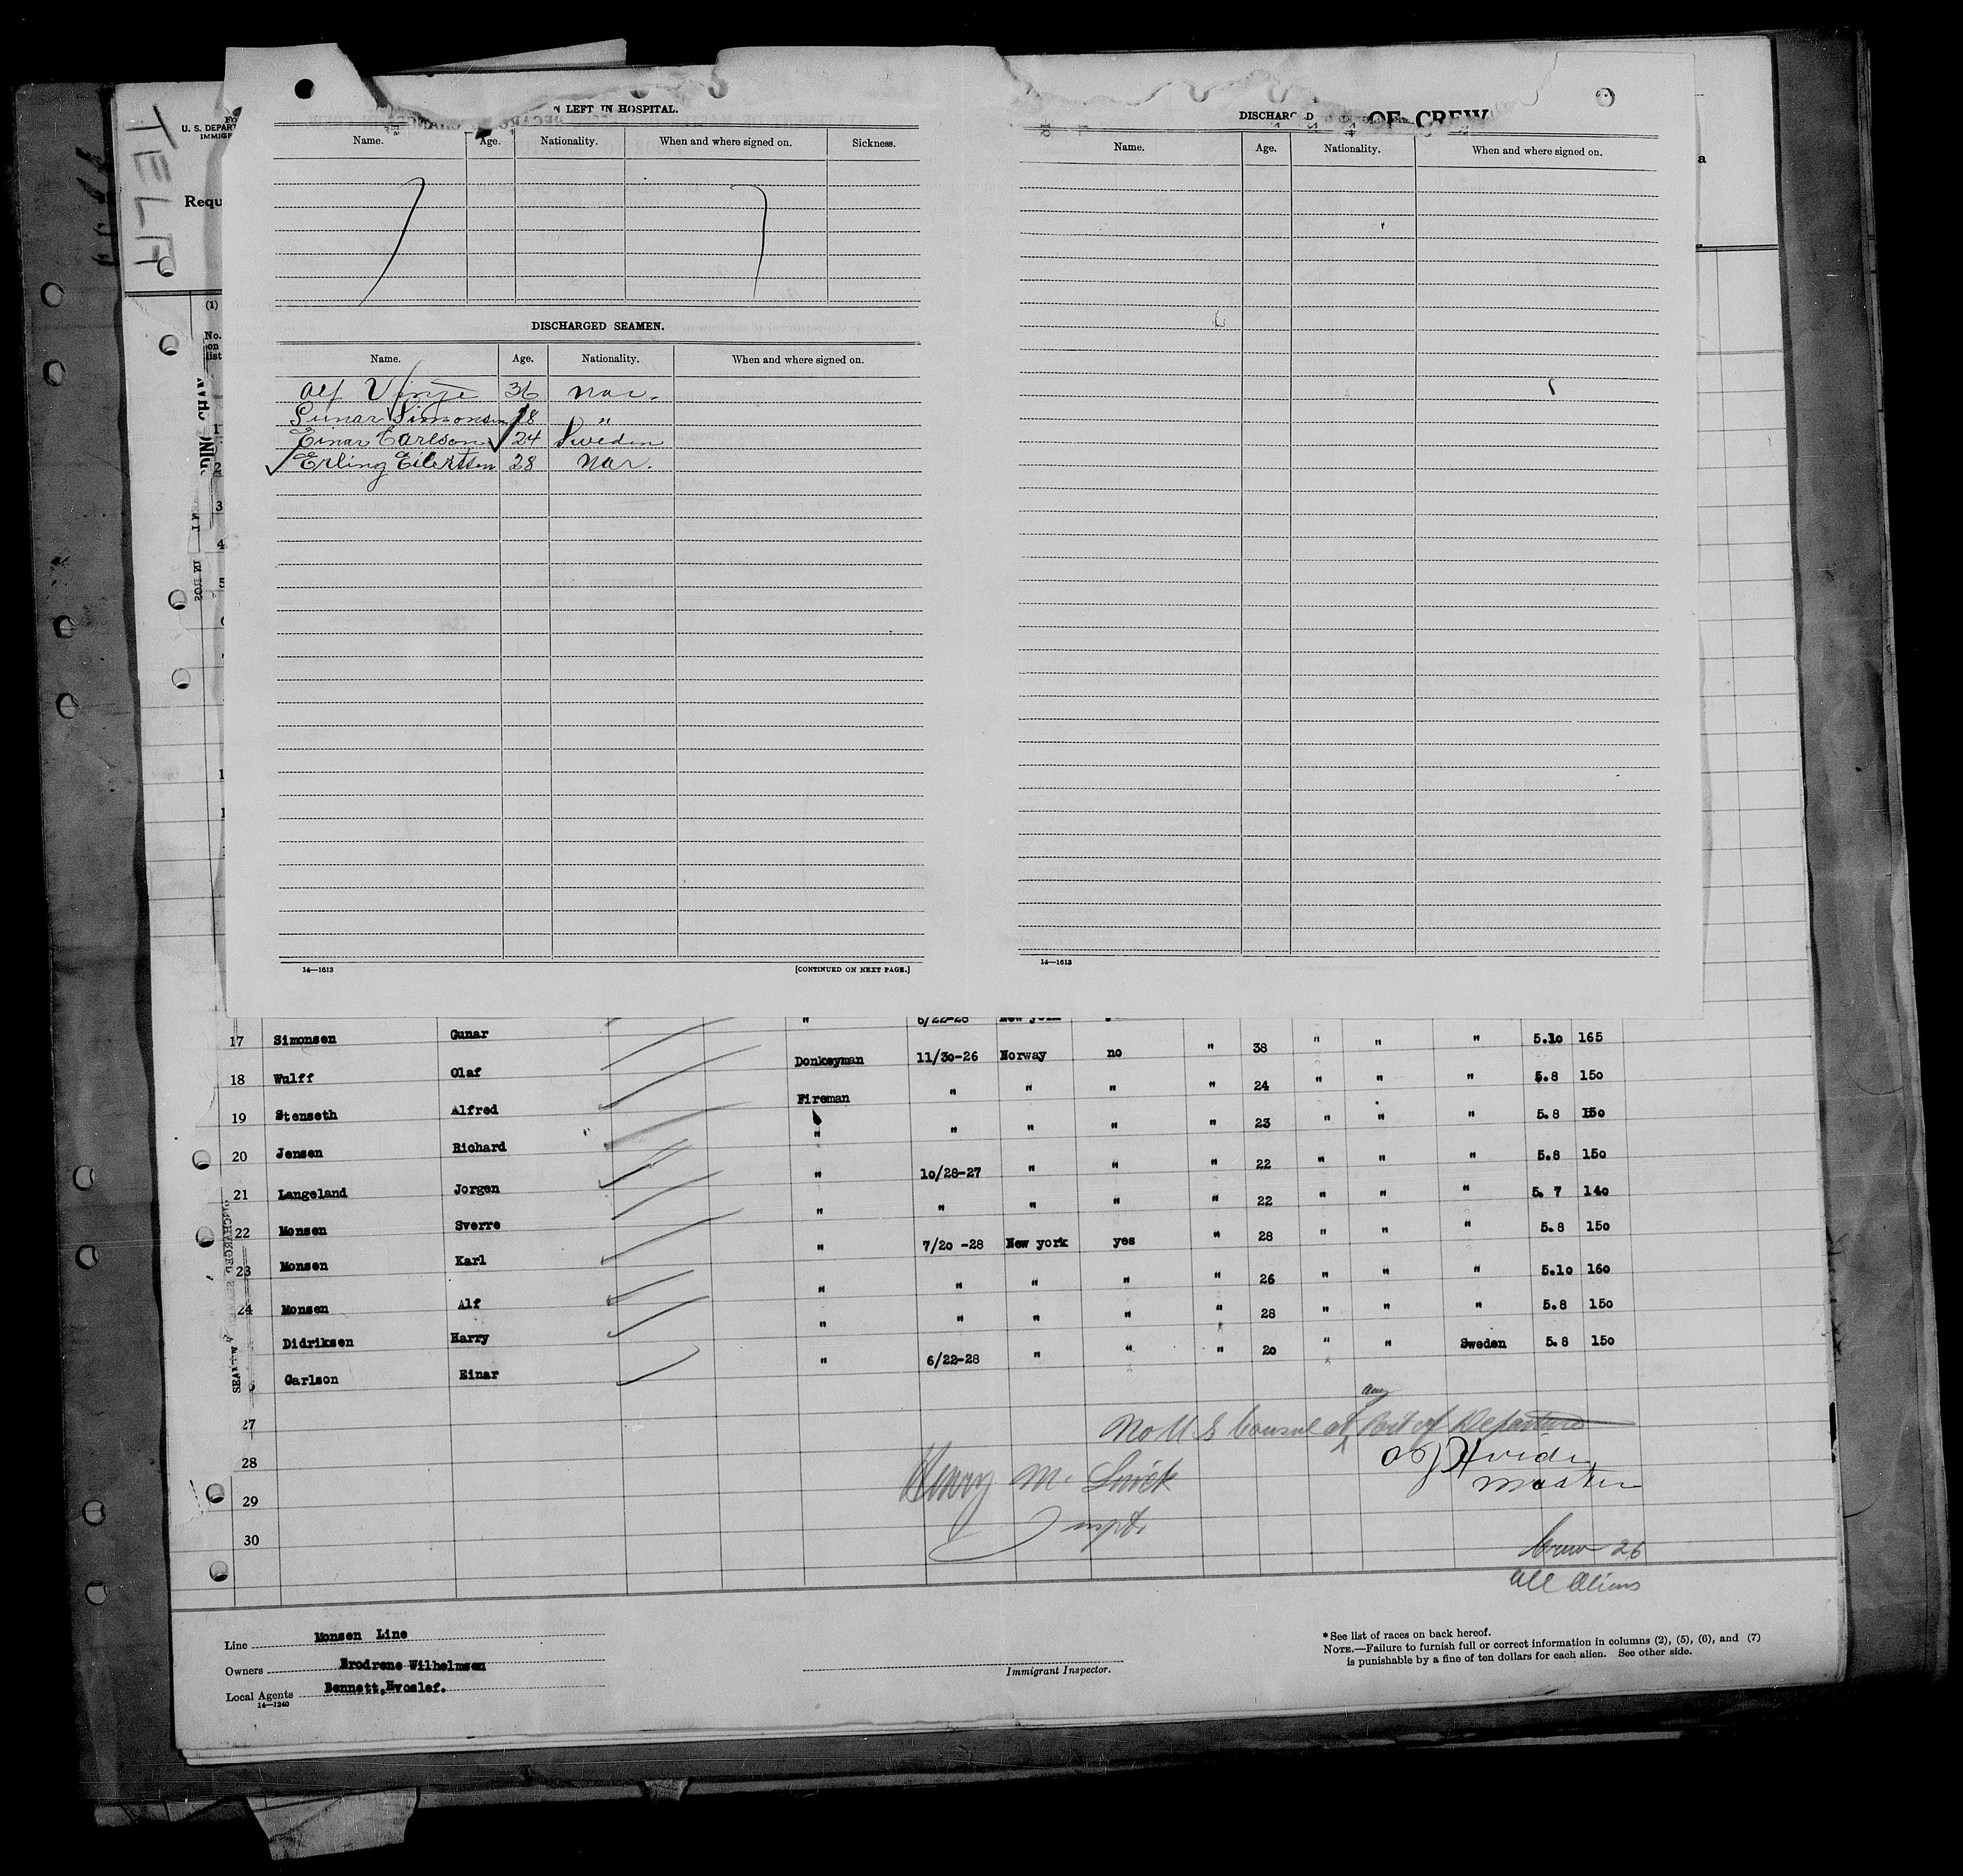 TELA
U. S. DEPAR
IMMIG
Requ
(1)
No.
on
list
N LEFT IN HOSPITAL.
Name. Age. Nationality. When and where signed on. Sickness.
DISCHARGED SEAMEN.
Name. Age. Nationality. When and where signed on.
Alf Vinje 36 Nor.
Gunar Simonsen 18 "
Einar Carlson 24 Sweden
Erling Eilertsen 28 Nor.
14—1613 [CONTINUED ON NEXT PAGE.]
DISCHARG D OF CREW
Name. Age. Nationality. When and where signed on.
14—1613
" 6/22-28 New york
17 Simonsen Gunar
Donkeyman 11/30-26 Norway no " 38 " " " 5.10 165
18 Wulff Olaf
Fireman " " " " 24 " " " 5.8 150
19 Stenseth Alfred
" " " " " 23 " " " 5.8 150
20 Jensen Richard
" 10/28-27 " " " 22 " " " 5.8 150
21 Langeland Jorgen
" " " " " 22 " " " 5.7 140
22 Monsen Sverre
" 7/20 -28 New york yes " 28 " " " 5.8 150
23 Monsen Karl
" " " " " 26 " " " 5.10 160
24 Monsen Alf
" " " " " 28 " " " 5.8 150
Didriksen Harry
" 6/22-28 " " " 20 " " Sweden 5.8 150
Carlson Einar
27
28
29
30
No U S Consul at any Port of Departure
Master
Henry M.
Inspt.
Crew 26
All Aliens
Line Monsen Line
Owners Brodrene Wilhelmsen
Local Agents Bennett,Hvoslef.
14—1240
Immigrant Inspector.
* See list of races on back hereof.
NOTE.—Failure to furnish full or correct information in columns (2), (5), (6), and (7)
is punishable by a fine of ten dollars for each alien. See other side.